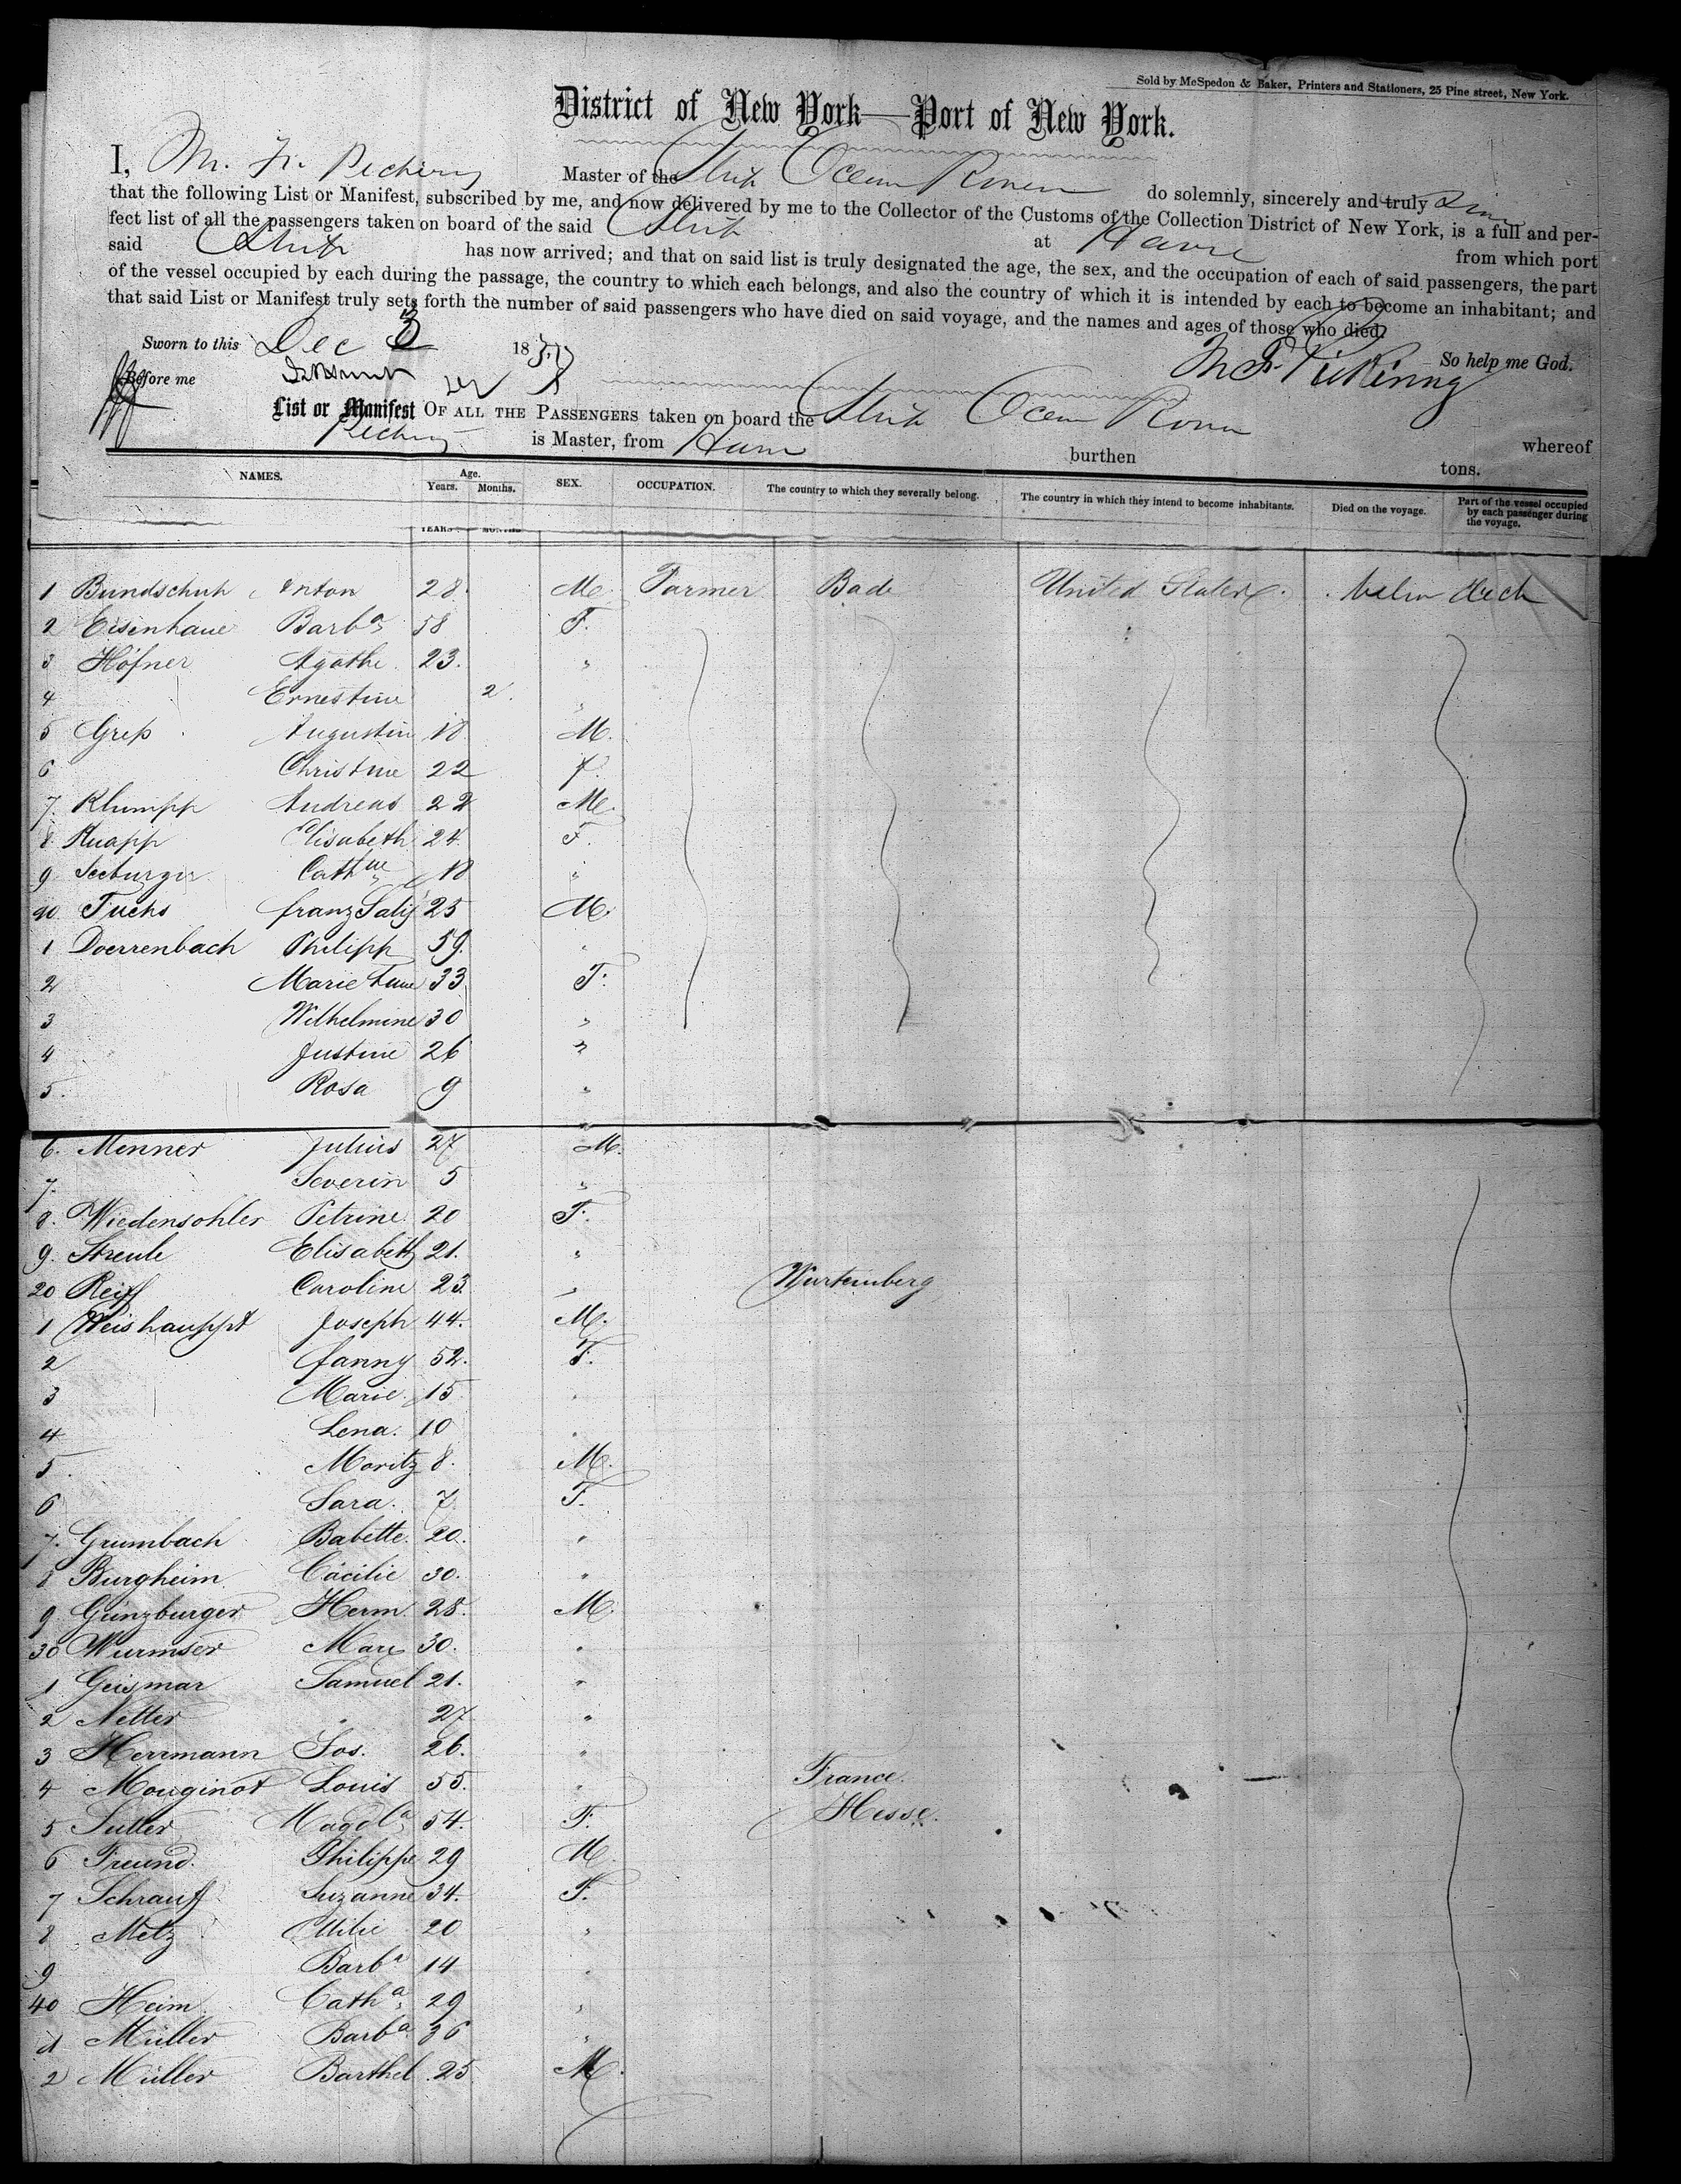 Sold by McSpedon & Baker, Printers and Stationers, 25 Pine street, New York.
District of New York—Port of New York.
I, M. F. Pickering Master of the Ship Ocean Rover do solemnly, sincerely and truly
that the following List or Manifest, subscribed by me, and now delivered by me to the Collector of the Customs of the Collection District of New York, is a full and per-
fect list of all the passengers taken on board of the said Ship at Havre from which port
said Ship has now arrived; and that on said list is truly designated the age, the sex, and the occupation of each of said passengers, the part
of the vessel occupied by each during the passage, the country to which each belongs, and also the country of which it is intended by each to become an inhabitant; and
that said List or Manifest truly sets forth the number of said passengers who have died on said voyage, and the names and ages of those who died.
Sworn to this Dec 3 1857 So help me God.
Before me M. F. Pickering
List or Manifest OF ALL THE PASSENGERS taken on board the Ship Ocean Rover whereof
Pickering is Master, from Havre burthen tons.
NAMES. Age. Years. Months. SEX. OCCUPATION. The country to which they severally belong. The country in which they intend to become inhabitants. Died on the voyage. Part of the vessel occupied by each passenger during the voyage.
YEARS MONTHS
1 Bundschuh Anton 28. M. Farmer Bade United States. Below Deck
2 Eisenhaue Barba 58 F.
3 Höfner Agathe. 23. "
4 Ernestine 2. "
5 Greps Augustin 18 M.
6 Christine 22 f.
7. Klumpp Andreas 22 M.
8. Knapp Elisabeth 24. F.
9. Seeburger Cathne 18 "
10. Fuchs franz Salis 25 M.
1 Doerrenbach Philipp 59. "
2 Marie 33 F.
3 Wilhelmine 30 "
4 Justine 26 "
5. Rosa 9 "
6. Menner Julius 27 M.
7. Severin 5 "
8. Wiedensohler Petrine. 20 F.
9. Streule Elisabeth 21. "
20 Reiff Caroline 23 " Wurtemberg
1 Weishauppt Joseph 44. M.
2 fanny 52. F.
3 Marie. 15 "
4 Lena. 10 "
5. Moritz 8. M.
6 Sara. 7. F.
7. Grumbach Babette. 20. "
8 Burgheim Cäcilie 30. "
9. Günzburger Herm. 28. M.
30 Wurmser Marx 30. "
1 Geismar Samuel 21. "
2 Netter " 27 "
3 Herrmann Jos. 26. "
4 Mouginot Louis 55. " France.
5 Sutter Magdla 54. F. Hesse.
6 Freund. Philippe 29 M.
7 Schrauff Suzanne 34. F.
8 Metz Ottilie 20 "
9 Barba 14 "
40 Heim. Catha 29 "
1 Müller Barba 36 "
2 Müller Barthel 25. M.